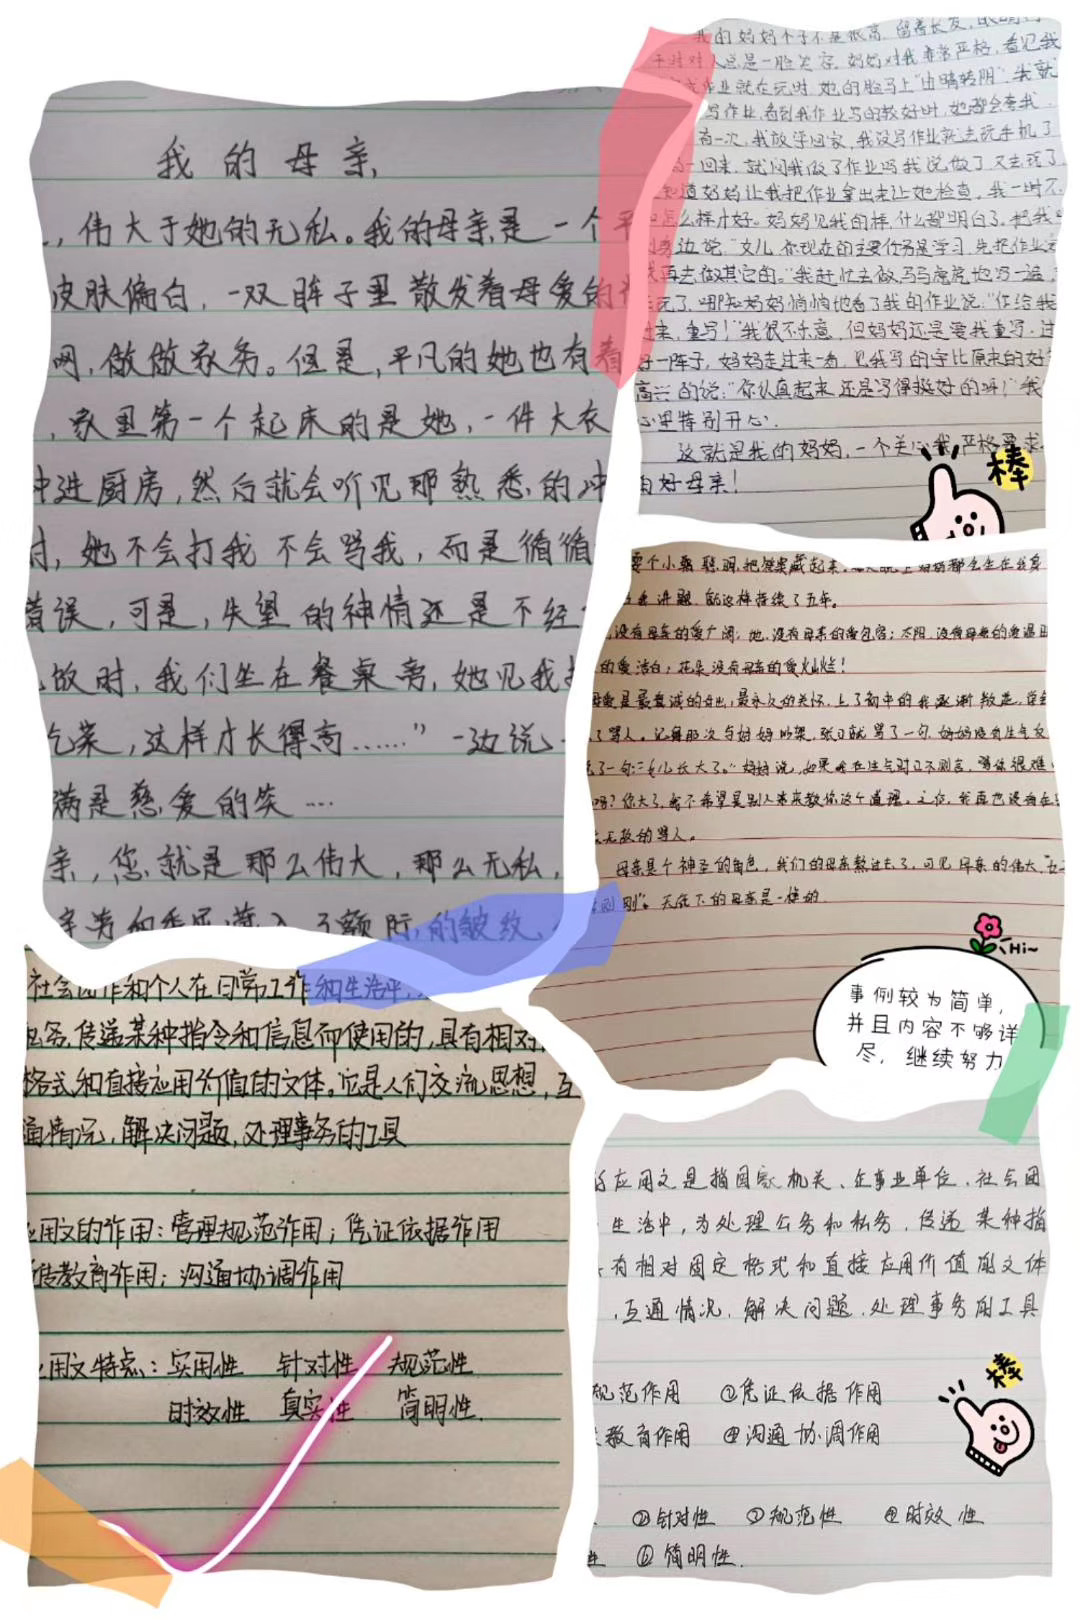 我的母亲
，伟大于她的无私。我的母亲是一个平
皮肤偏白，一双眸子里散发着母爱的
啊，做做家务。但是，平凡的她也有着
，家里第一个起床的是她，一件大衣
冲进厨房，然后就会听见那熟悉的冲
时，她不会打我不会骂我，而是循循
错误，可是，失望的神情还是不经
饭时，我们坐在餐桌旁，她见我
吃菜，这样才长得高……”一边说
满是慈爱的笑…
亲，您就是那么伟大，那么无私，
了额际的皱纹
我的妈妈个子不是很高，留着长发，
平时对人总是一脸笑容，妈妈对我非常严格，看见我
作业就在玩时，她的脸马上“由晴转阴”，我就
写作业，看到我作业写的较好时，她都会夸我
有一次，我放学回家，我没写作业就去玩手机了
一回来，就问我做了作业吗我说做了又去玩了
知道妈妈让我把作业拿出来让她检查，我一时不
怎么样才好。妈妈见我的样，什么都明白了，把我
身边说，“女儿，你现在的主要任务是学习，先把作业
再去做其它的。”我赶忙去做，马马虎虎地写一遍，
玩了，哪知妈妈悄悄地看了我的作业说：“你给我
过来，重写！”我很不乐意，但妈妈还是要我重写，过
好一阵子，妈妈走过来一看，见我写的字比原来的好
高兴的说：“你认真起来还是写得挺好的呀！”我
心里特别开心。
这就是我的妈妈，一个关心我，严格要求
的好母亲！
棒
耍个小聪明，把答案藏起来。
讲题，就这样持续了五年。
没有母亲的爱广阔；地，没有母亲的爱包容；太阳，没有母亲的爱温
的爱洁白；花朵没有母亲的爱灿烂！
母爱是最真诚的，最永久的关怀，上了初中的我逐渐叛逆，学会
了骂人。记得那次与妈妈吵架，张口就骂了一句，妈妈没有生气
了一句：“女儿长大了。”妈妈说，如果
吗？你大了，我不希望是别人来教你这个道理。之后，我再也没有在
骂人。
母亲是个神圣的角色，我们的母亲熬过去了，可见母亲的伟大
天底下的母亲是一样的
Hi~
事例较为简单，
并且内容不够详
尽，继续努力
社会团体和个人在日常工作和生活中，
私务，传递某种指令和信息而使用的，具有相对
格式和直接应用价值的文体。它是人们交流思想，互
通情况，解决问题，处理事务的工具
应用文的作用：管理规范作用；凭证依据作用
宣传教育作用；沟通协调作用
应用文特点：实用性 针对性 规范性
时效性 真实性 简明性.
应用文是指国家机关、企事业单位，社会团
生活中，为处理公务和私务，传递某种指
有相对固定格式和直接应用价值的文体
，互通情况，解决问题，处理事务的工具
规范作用 ②凭证依据作用
教育作用 ④沟通协调作用
棒
②针对性 ③规范性 ④时效性
性 ⑥简明性.